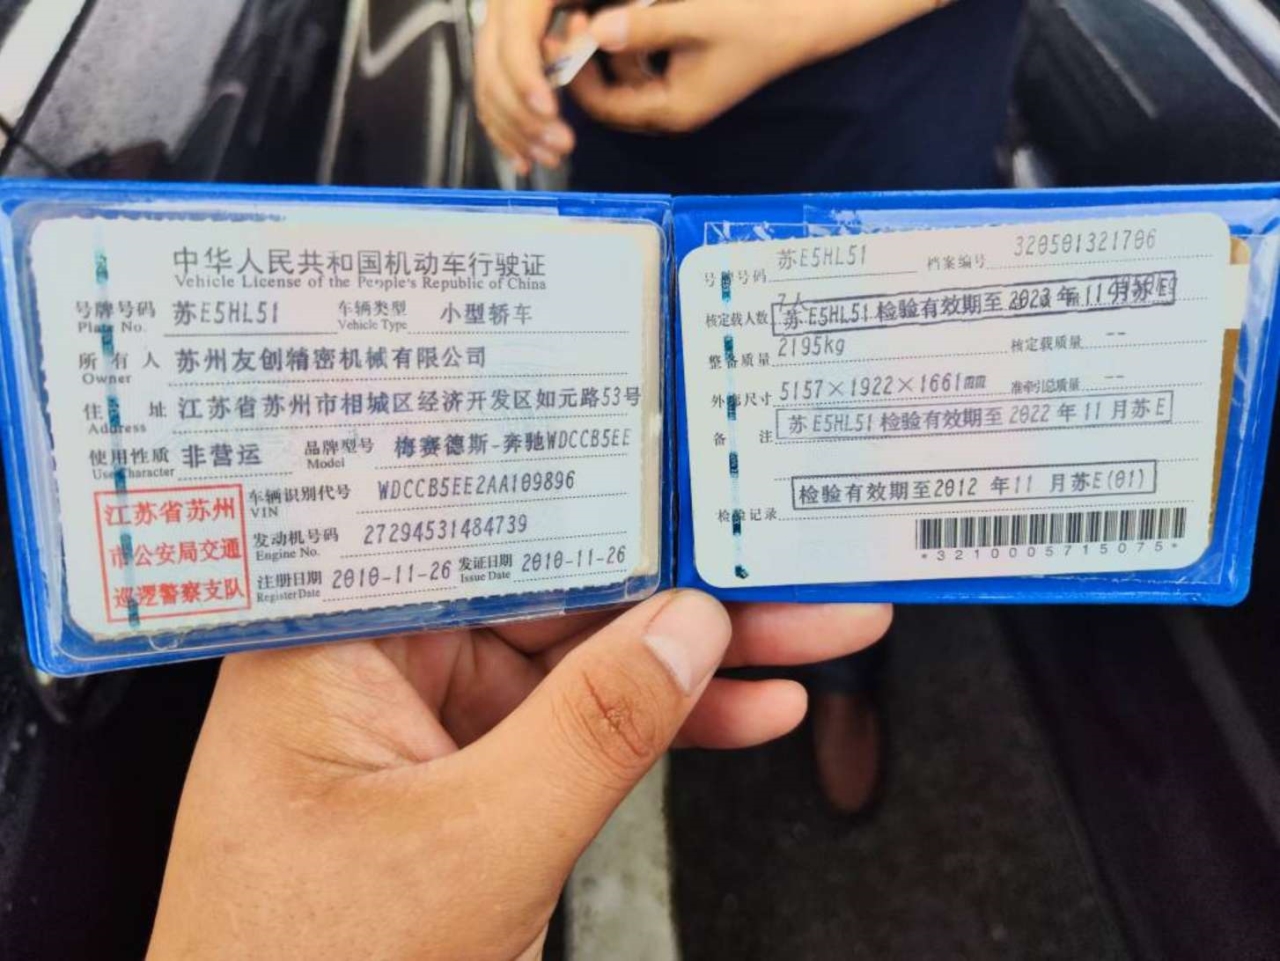 中华人民共和国机动车行驶证
Vehicle License of the People's Republic of China
号牌号码 苏E5HL51 车辆类型 小型轿车
Plate No. Vehicle Type
所有人 苏州友创精密机械有限公司
Owner
住址 江苏省苏州市相城区经济开发区如元路53号
Address
使用性质 非营运 品牌型号 梅赛德斯-奔驰WDCCB5EE
Use Character Model
江苏省苏州
市公安局交通
巡逻警察支队
车辆识别代号 WDCCB5EE2AA109896
VIN
发动机号码 27294531484739
Engine No.
注册日期 2010-11-26 发证日期 2010-11-26
Register Date Issue Date
号牌号码 苏E5HL51 档案编号 320501321706
核定载人数
苏E5HL51 检验有效期至 2023 年 11 月苏E
整备质量 2195kg 核定载质量 --
外廓尺寸 5157×1922×1661 准牵引总质量 --
苏E5HL51 检验有效期至 2022 年 11 月苏E
备注
检验有效期至2012 年11 月苏E(01)
检验记录
*3210005715075*